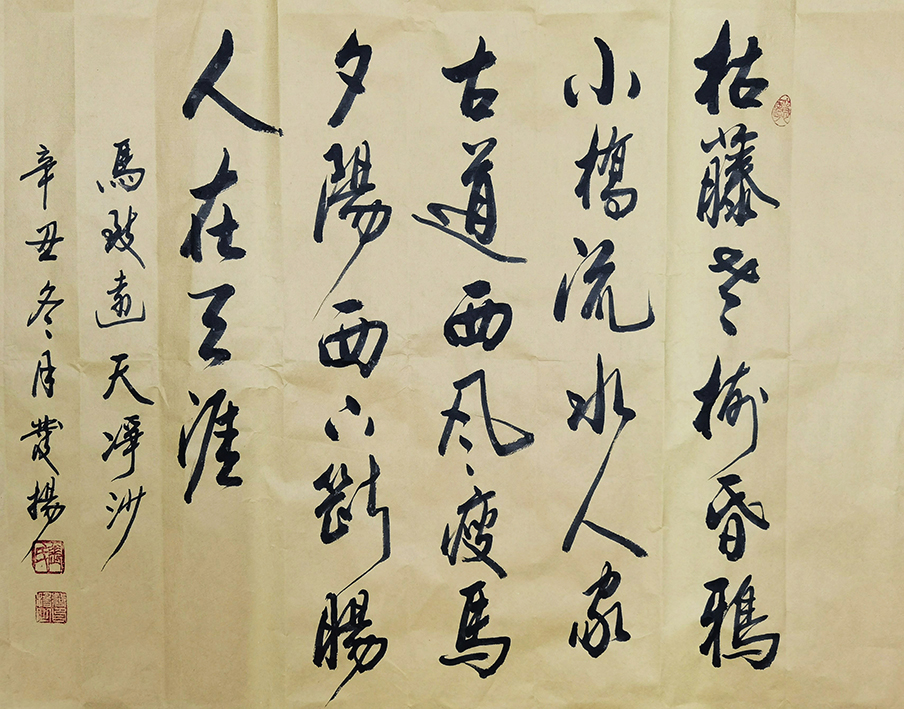 枯藤老樹昏鴉
小橋流水人家
古道西風瘦馬
夕陽西下斷腸
人在天涯
馬致遠天淨沙
辛丑冬月發揚